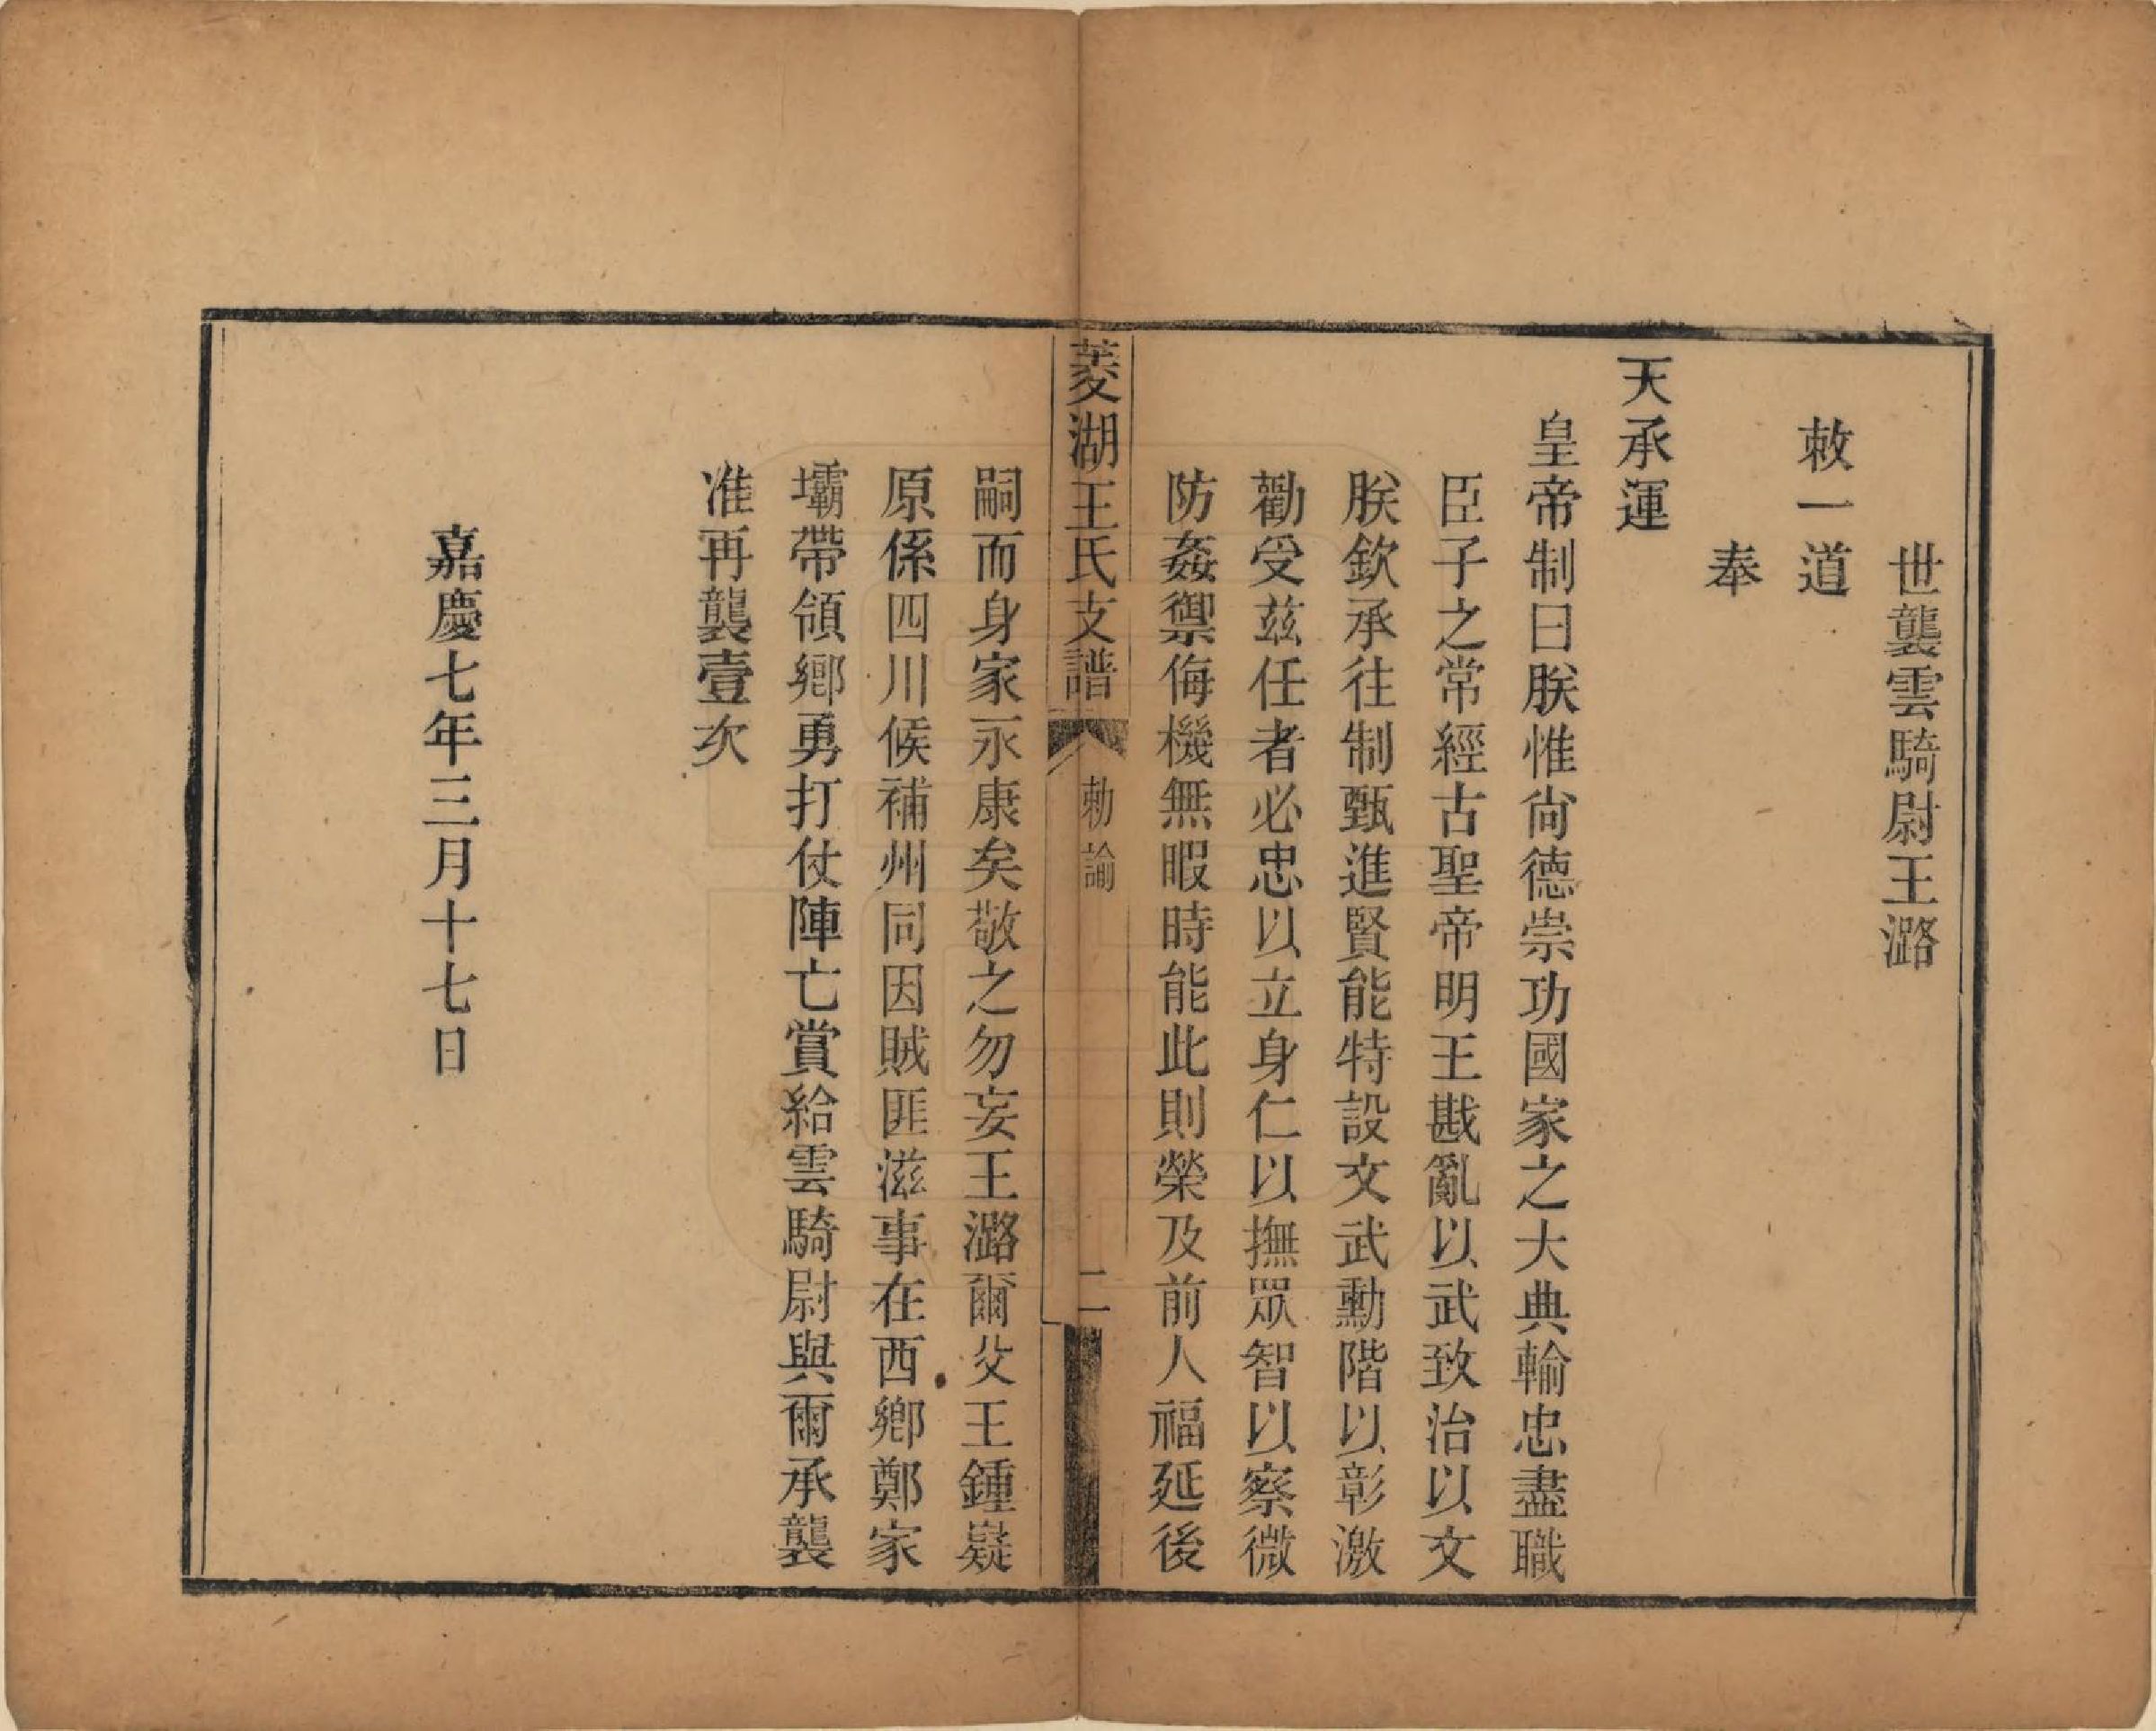 世襲雲騎尉王潞
敕一道
奉
天承運
皇帝制曰朕惟尙德崇功國家之大典輸忠盡職
臣子之常經古聖帝明王戡亂以武致治以文
朕欽承往制甄進賢能特設文武勳階以彰激
勸受茲任者必忠以立身仁以撫眾智以察微
防姦禦侮機無暇時能此則榮及前人福延後
菱湖王氏支譜
勅諭
二
嗣而身家永康矣敬之勿妄王潞爾父王鍾嶷
原係四川候補州同因賊匪滋事在西鄉鄭家
壩帶領鄉勇打仗陣亡賞給雲騎尉與爾承襲
准再襲壹次
嘉慶七年三月十七日